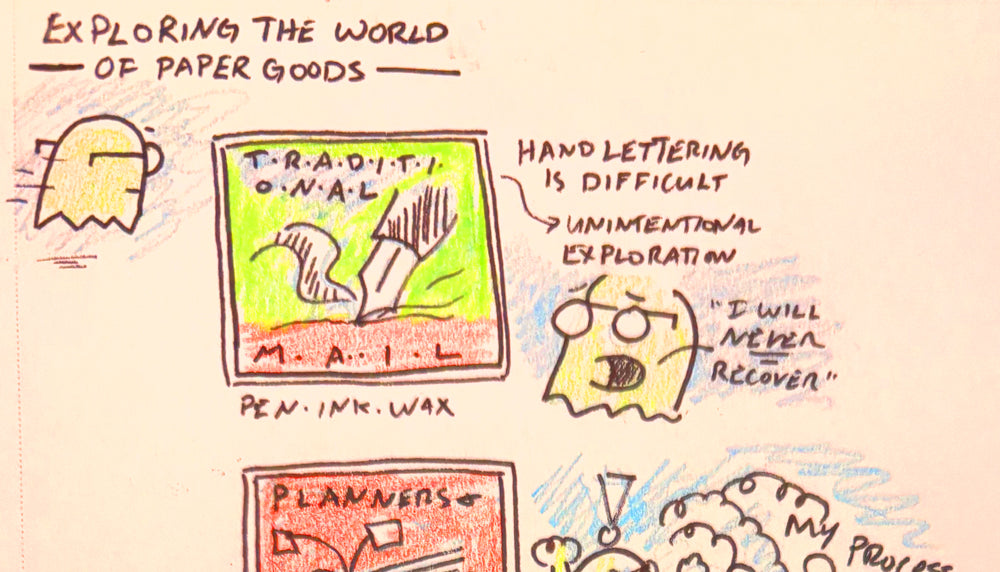 EXPLORING THE WORLD
OF PAPER GOODS
T.R.A.D.I.T.I.
O.N.A.L
M.A.I.L
PEN.INK.WAX
HAND LETTERING
IS DIFFICULT
UNINTENTIONAL
EXPLORATION
"I WILL
NEVER
RECOVER"
PLANNERS+
MY
PROCESS